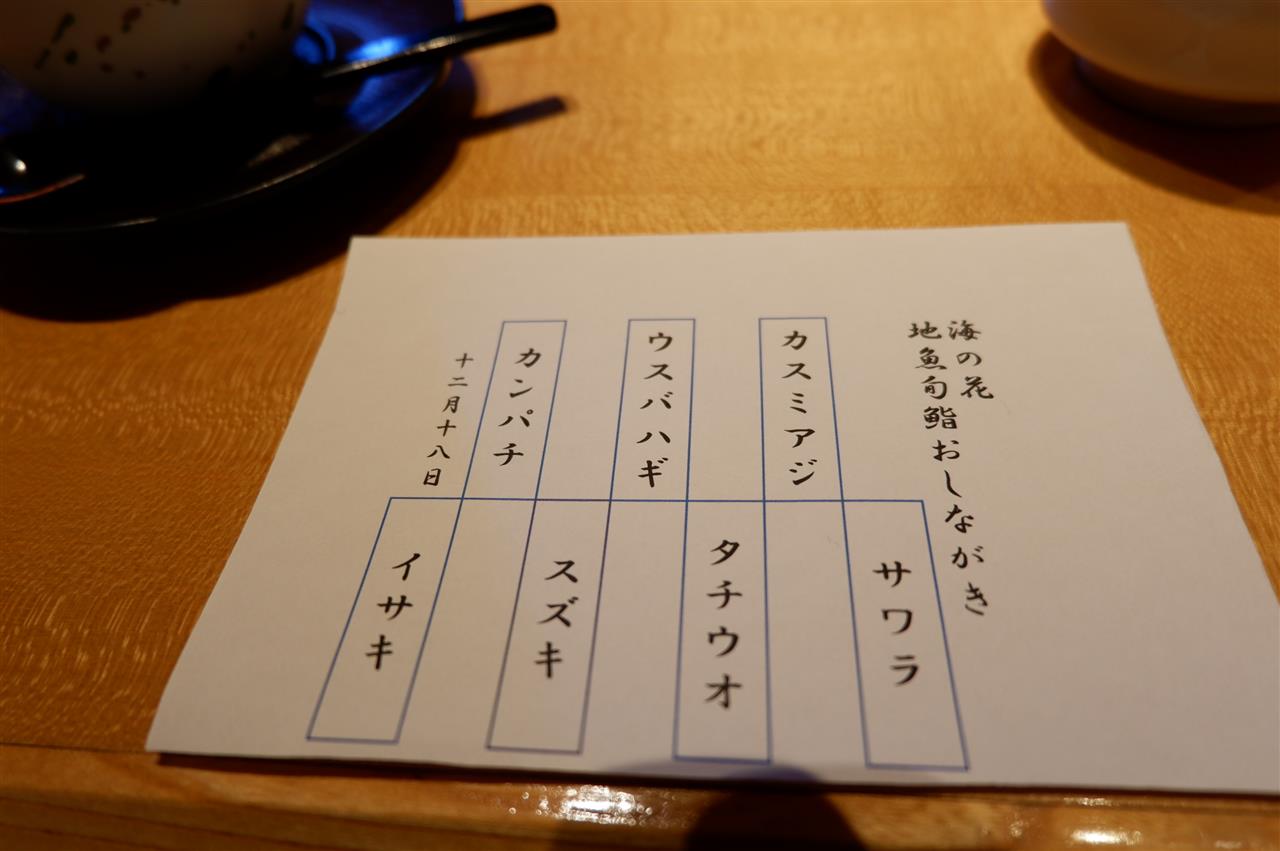 海の花
地魚旬鮨おしながき
サワラ
カスミアジ
タチウオ
ウスバハギ
スズキ
カンパチ
イサキ
十二月十八日